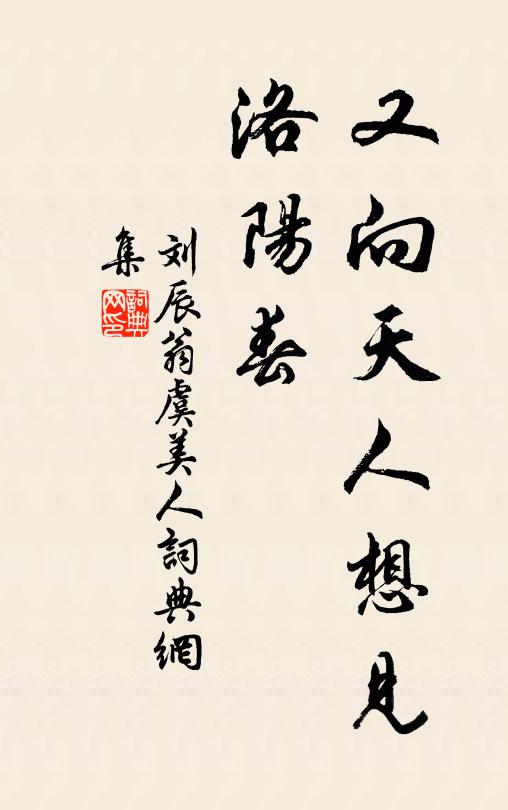 又向天人想見
洛陽春
刘辰翁虞美人詞典網
集
詞典
网印